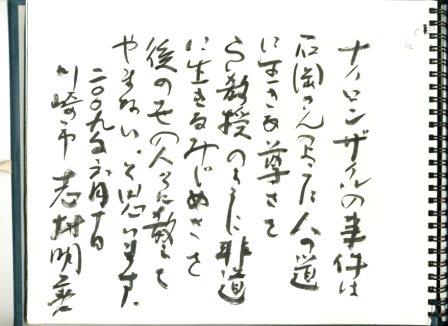 ナイロンザイルの事件は
石岡さんのように人の道
に生きる尊さと
教授のように非道
に生きるみじめさを
後の世の人々に教えて
やまない。と思います。
二〇〇九年六月十日
川崎市 志村明